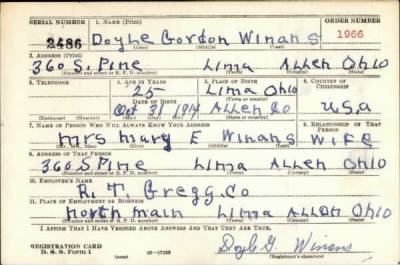 SERIAL NUMBER 1. NAME (Print) ORDER NUMBER
2486 Doyle Gordon Winans 1966
(First) (Middle) (Last)
2. ADDRESS (Print)
360 S. Pine Lima Allen Ohio
(Number and street or R. F. D. number) (Town) (County) (State)
3. TELEPHONE 4. AGE IN YEARS 5. PLACE OF BIRTH 6. COUNTRY OF CITIZENSHIP
25 Lima Ohio
DATE OF BIRTH (Town or county)
Oct 31 1914 Allen Co U.S.A
(Mo.) (Day) (Yr.) (State or country)
7. NAME OF PERSON WHO WILL ALWAYS KNOW YOUR ADDRESS 8. RELATIONSHIP OF THAT PERSON
mrs Mary E Winans Wife
(Mr., Mrs., Miss) (First) (Middle) (Last)
9. ADDRESS OF THAT PERSON
360 S Pine Lima Allen Ohio
(Number and street or R. F. D. number) (Town) (County) (State)
10. EMPLOYER'S NAME
R. T. Gregg. Co
11. PLACE OF EMPLOYMENT OR BUSINESS
north main Lima Allen Ohio
(Number and street or R. F. D. number) (Town) (County) (State)
I AFFIRM THAT I HAVE VERIFIED ABOVE ANSWERS AND THAT THEY ARE TRUE.
REGISTRATION CARD
D. S. S. Form 1 16-17105 Doyle G. Winans
(Registrant's signature)